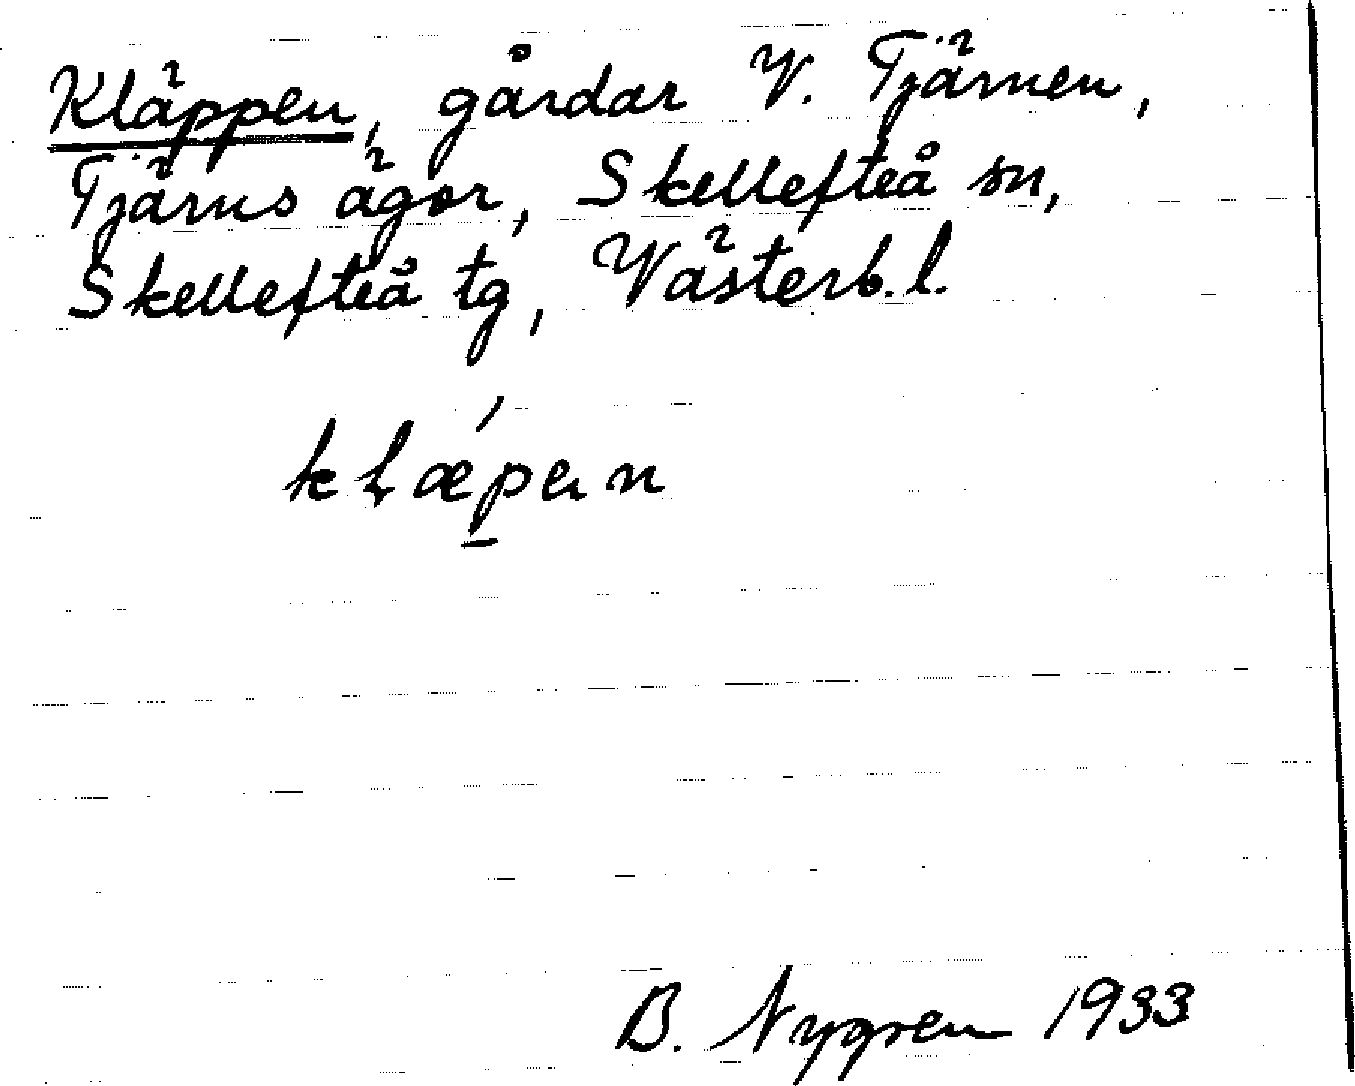 Kläppen, gårdar V. Tjärnen,
Tjärns ägor, Skellefteå sn,
Skellefteå tg, Västerb. l.
kḷæ´p̠en
B. Nygren 1933